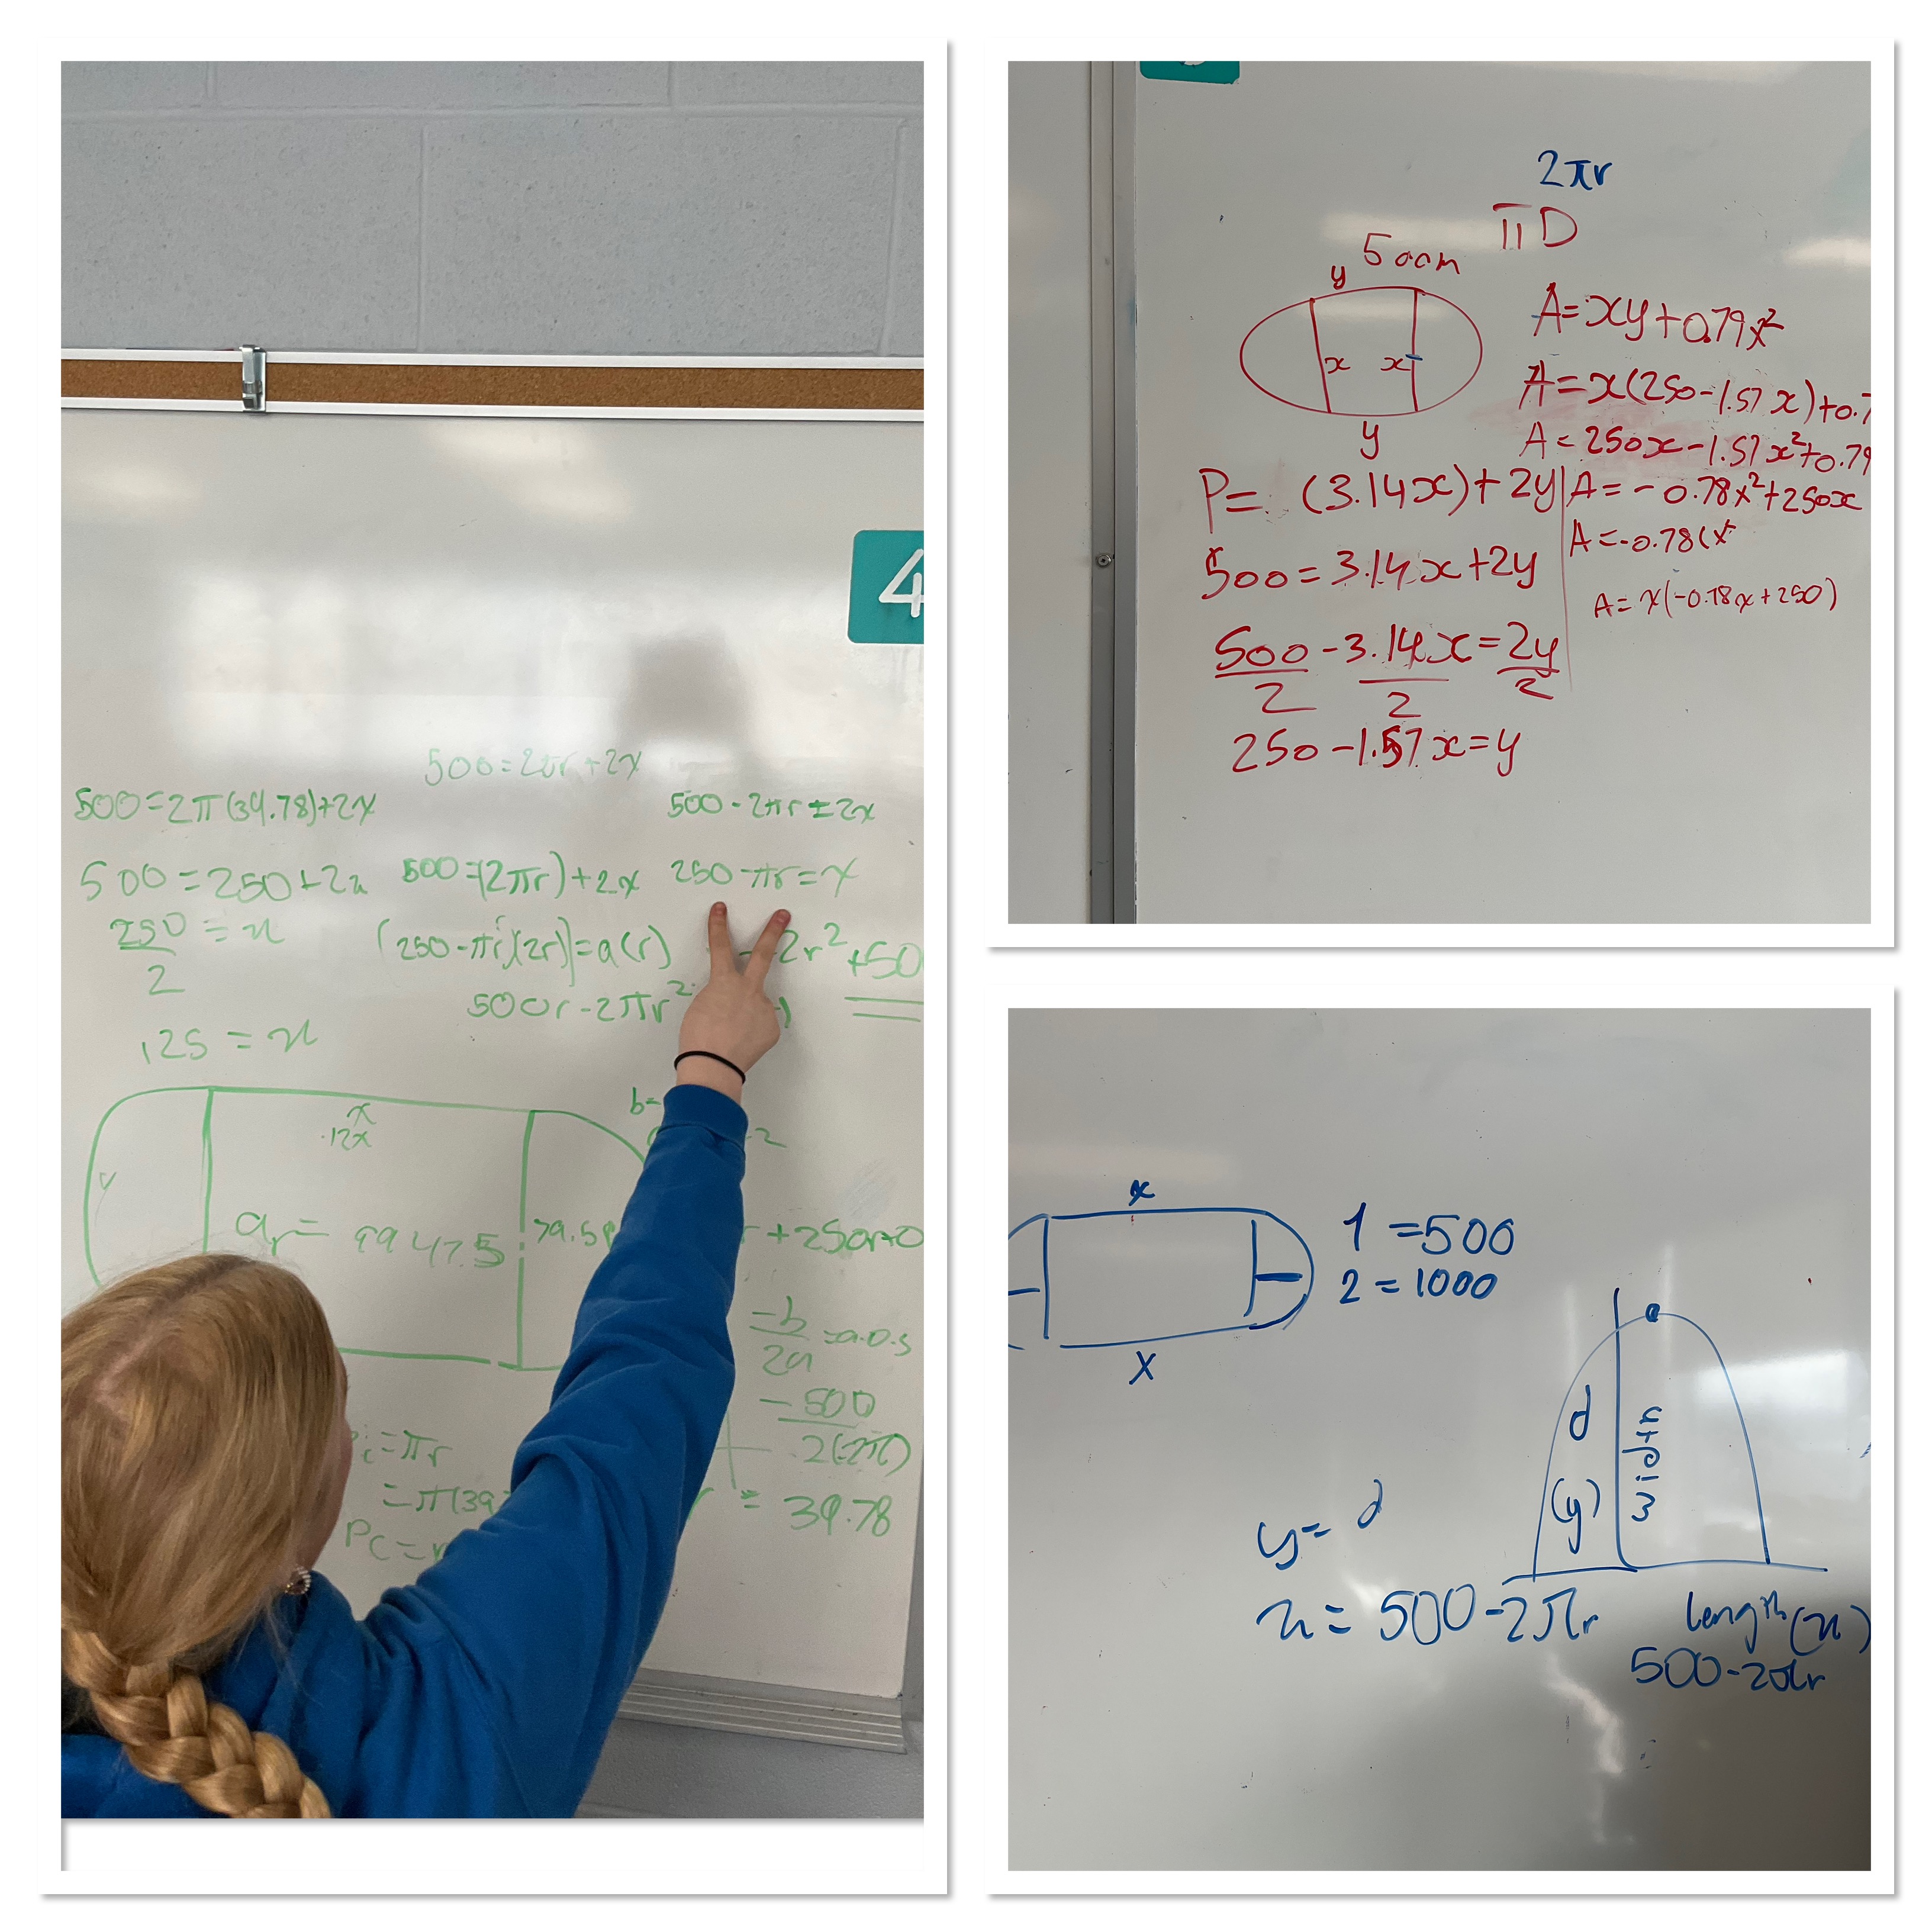 4
500=2πr+2x
500=2π(39.78)+2x
500-2πr=2x
500=250+2x
500=(2πr)+2x
250-πr=x
250/2=x
(250-πr)(2r)=a(r)
2r²+50
500r-2πr²
125=x
x
12x
b=
y
79.5
+250r+0
-b/2a=a.o.s
-500/2(-2π)
=πr
=π(39
Pc=
=39.78
2πr
πD
500m
y
x x
y
A=xy+0.79x²
A=x(250-1.57x)+0.7
A=250x-1.57x²+0.79
A=-0.78x²+250x
A=-0.78(x²
A=x(-0.78x+250)
P= (3.14x)+2y
500=3.14x+2y
500/2-3.14x/2=2y/2
250-1.57x=y
x
1=500
2=1000
x
d
(y)
width
y= d
x=500-2πr
length(x)
500-2πr